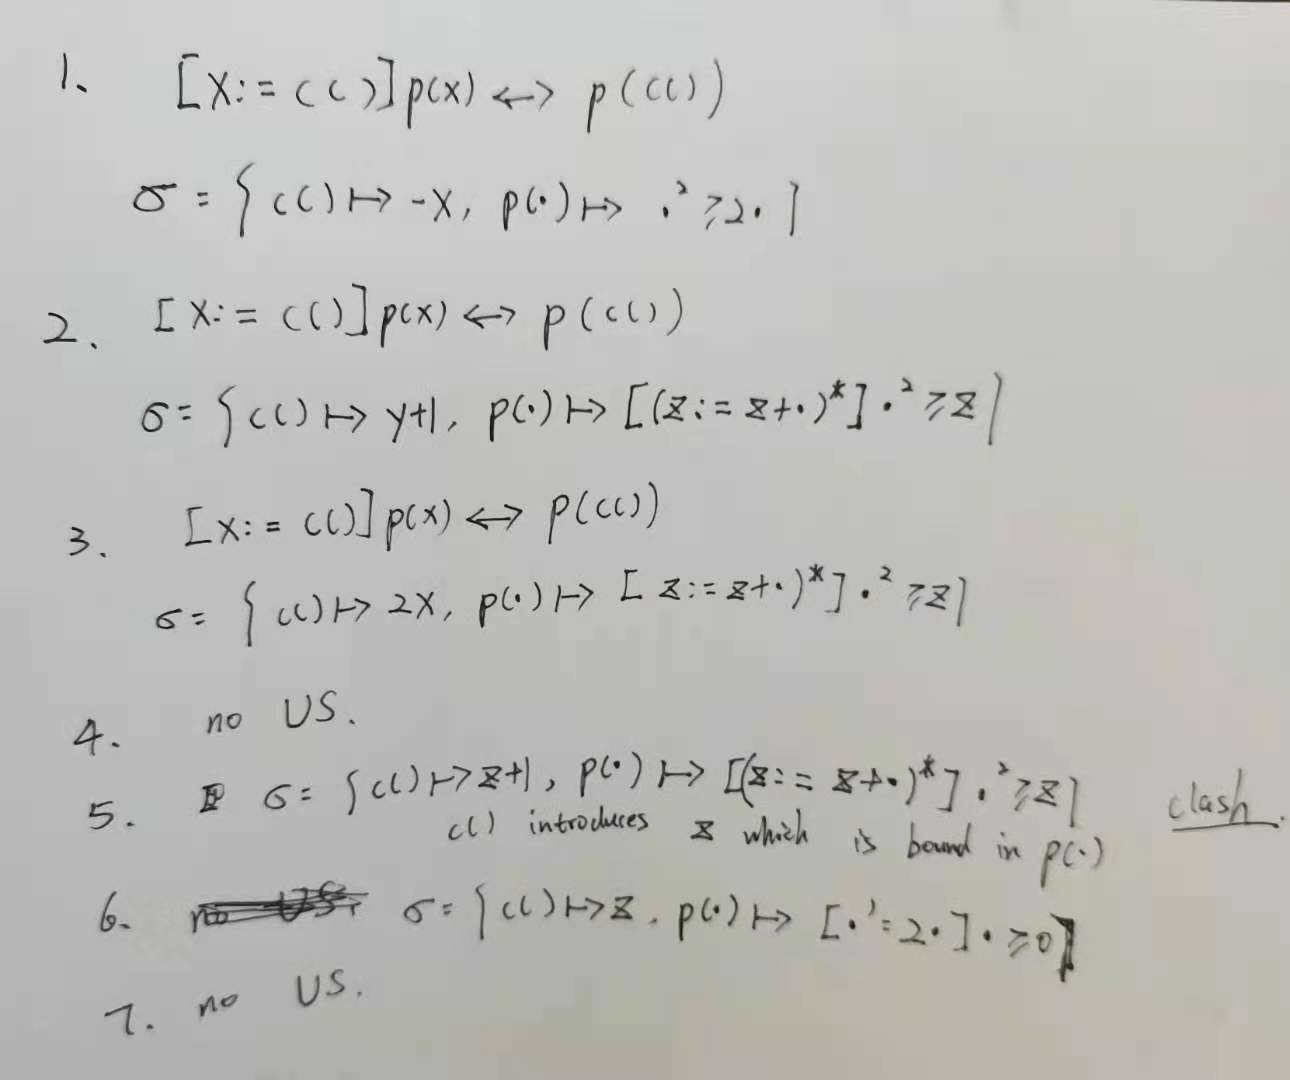 1. [x := c()]p(x) ↔ p(c())
σ = {c() ↦ -x, p(·) ↦ ·² ≥ 2·}
2. [x := c()]p(x) ↔ p(c())
σ = {c() ↦ y+1, p(·) ↦ [(z := z+·)*] ·² ≥ z}
3. [x := c()]p(x) ↔ p(c())
σ = {c() ↦ 2x, p(·) ↦ [z := z+·)*] ·² ≥ z}
4. no US.
5. σ = {c() ↦ z+1, p(·) ↦ [(z := z+·)*] ·² ≥ z} clash.
c() introduces z which is bound in p(·)
6. no US. σ = {c() ↦ z, p(·) ↦ [·' = 2·] · ≥ 0}
7. no US.